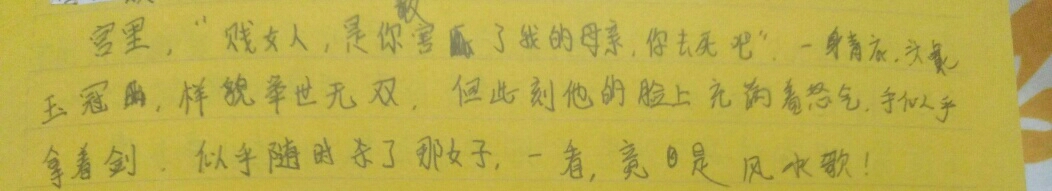 宫里,“贱女人,是你害了我的母亲,你去死吧”,一身青衣,头戴
玉冠,样貌举世无双,但此刻他的脸上充满着怒气,手似乎
拿着剑.似乎随时杀了那女子,一看,竟是风水歌!